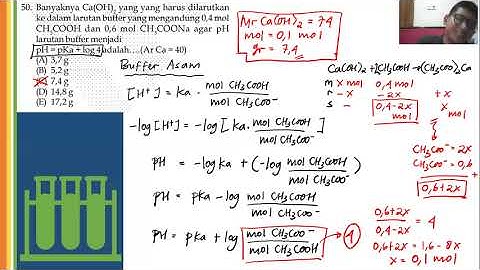 50. Banyaknya Ca(OH)₂ yang yang harus dilarutkan
ke dalam larutan buffer yang mengandung 0,4 mol
CH₃COOH dan 0,6 mol CH₃COONa agar pH
larutan buffer menjadi
pH = pKa + log 4 adalah....(Ar Ca = 40)
(A) 3,7 g
(B) 5,2 g
(C) 7,4 g
(D) 14,8 g
(E) 17,2 g
Mr Ca(OH)₂ = 74
mol = 0,1 mol
gr = 7,4
Buffer Asam
[H⁺] = Ka · mol CH₃COOH / mol CH₃COO⁻
-log[H⁺] = -log [Ka · mol CH₃COOH / mol CH₃COO⁻]
pH = -log Ka + (-log mol CH₃COOH / mol CH₃COO⁻)
pH = pKa - log mol CH₃COOH / mol CH₃COO⁻
pH = pKa + log mol CH₃COO⁻ / mol CH₃COOH
4
Ca(OH)₂ + 2CH₃COOH → (CH₃COO)₂Ca
m x mol 0,4 mol
r -x -2x +x
s - 0,4-2x mol x mol
CH₃COO⁻ = 2x
CH₃COO⁻ = 0,6
+
0,6+2x
0,6+2x / 0,4-2x = 4
0,6+2x = 1,6 - 8x
x = 0,1 mol